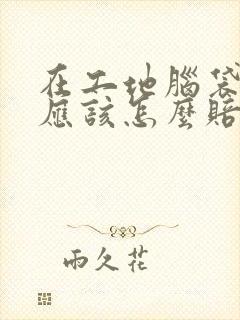 在工地腦袋
應該怎麼賠
雨久花